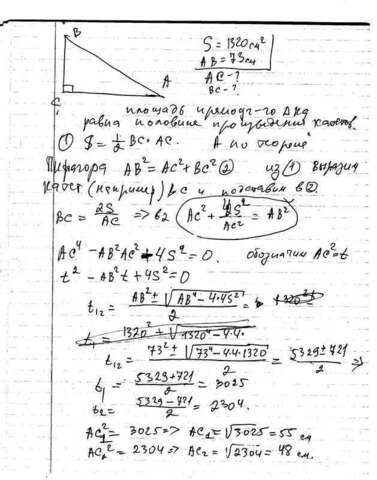 B
A
C
S = 1320 см²
AB = 73 см
AC - ?
BC - ?
площадь прямоуг-го Δка
равна половине произведения катетов.
① S = 1/2 BC · AC. А по теореме
Пифагора AB² = AC² + BC² ② из ① выразим
катет (например) BC и подставим в ②.
BC = 2S/AC => в 2 AC² + 4S²/AC² = AB²
AC⁴ - AB²AC² + 4S² = 0. обозначим AC² = t
t² - AB²t + 4S² = 0
t₁₂ = (AB² ± √(AB⁴ - 4·4S²))/2 =
t₁ = 1320² + √(1320⁴ - 4·4·
t₁₂ = (73² ± √(73⁴ - 4·4·1320))/2 = (5329 ± 721)/2 =>
t₁ = (5329 + 721)/2 = 3025
t₂ = (5329 - 721)/2 = 2304.
AC₁² = 3025 => AC₁ = √3025 = 55 см
AC₂² = 2304 => AC₂ = √2304 = 48 см.